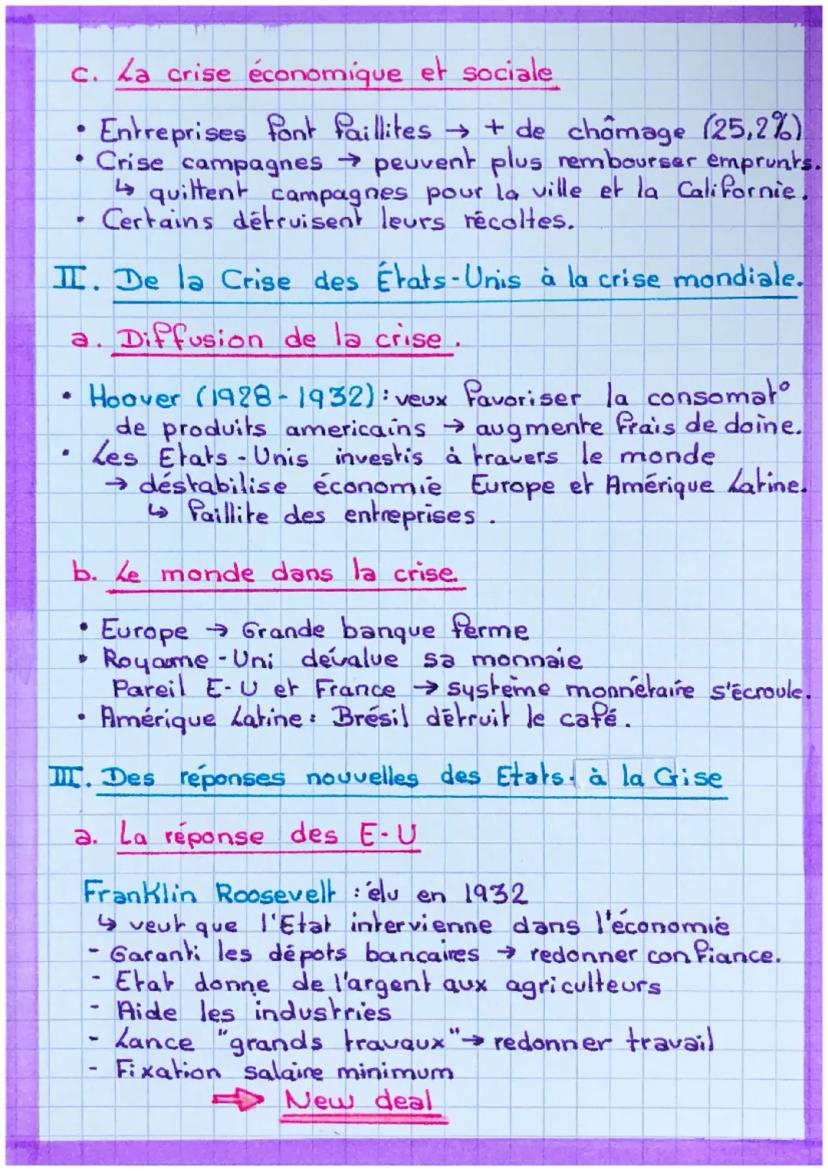 c. La crise économique et sociale
• Entreprises font faillites → + de chômage (25,2%)
• Crise campagnes → peuvent plus rembourser emprunts.
↳ quittent campagnes pour la ville et la Californie.
• Certains détruisent leurs récoltes.
II. De la Crise des États-Unis à la crise mondiale.
a. Diffusion de la crise.
• Hoover (1928-1932) : veux favoriser la consomat°
de produits americains → augmente frais de doine.
• Les Etats-Unis investis à travers le monde
→ déstabilise économie Europe et Amérique Latine.
↳ faillite des entreprises.
b. Le monde dans la crise.
• Europe → Grande banque ferme
• Royaume-Uni dévalue sa monnaie
Pareil E-U et France → système monnétaire s'écroule.
• Amérique Latine : Brésil détruit le café.
III. Des réponses nouvelles des Etats. à la Crise
a. La réponse des E-U
Franklin Roosevelt : élu en 1932
↳ veut que l'Etat intervienne dans l'économie
- Garanti les dépots bancaires → redonner confiance.
- Etat donne de l'argent aux agriculteurs
- Aide les industries
- Lance "grands travaux" → redonner travail
- Fixation salaire minimum
⇒ New deal